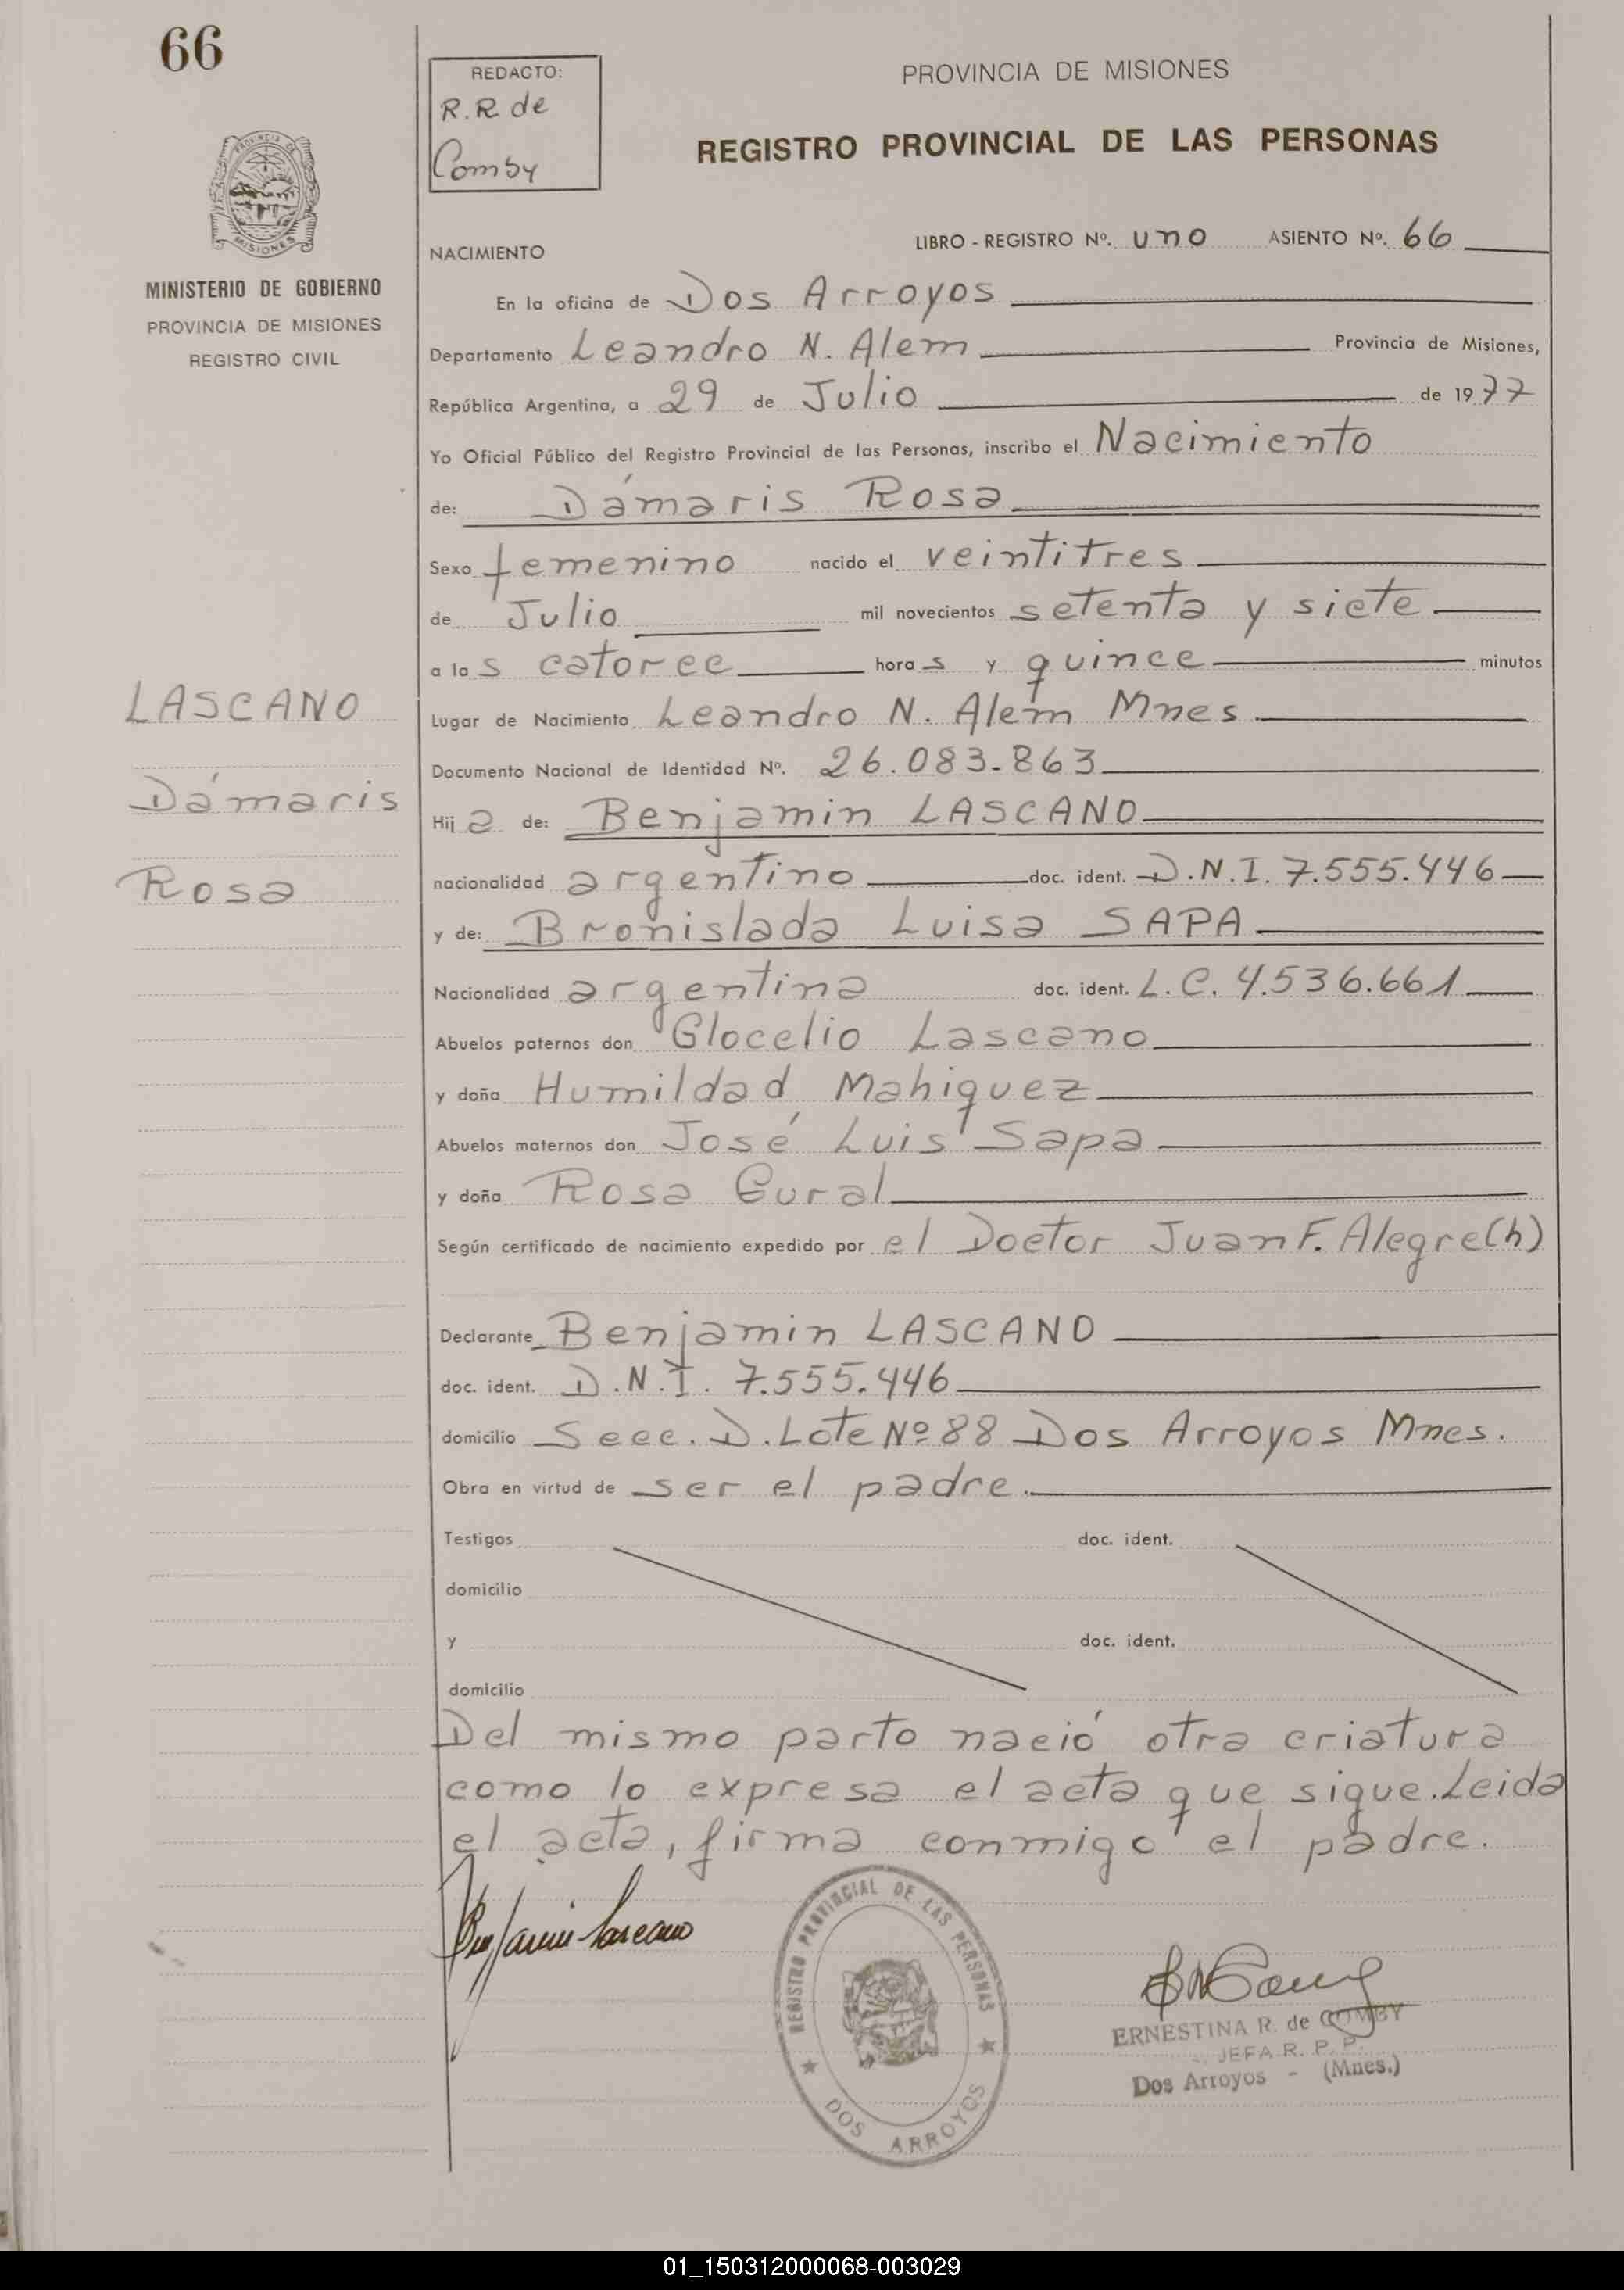 66
REDACTO:
R.R de
Comby
PROVINCIA DE MISIONES
REGISTRO PROVINCIAL DE LAS PERSONAS
PROVINCIA DE
MISIONES
MINISTERIO DE GOBIERNO
PROVINCIA DE MISIONES
REGISTRO CIVIL
LASCANO
Dámaris
Rosa
NACIMIENTO
LIBRO - REGISTRO Nº. uno ASIENTO Nº. 66
En la oficina de Dos Arroyos
Departamento Leandro N. Alem Provincia de Misiones,
República Argentina, a 29 de Julio de 1977
Yo Oficial Público del Registro Provincial de las Personas, inscribo el Nacimiento
de: Dámaris Rosa
Sexo femenino nacido el veintitres
de Julio mil novecientos setenta y siete
a las catorce horas y quince minutos
Lugar de Nacimiento Leandro N. Alem Mnes
Documento Nacional de Identidad Nº. 26.083.863
Hija de: Benjamin LASCANO
nacionalidad argentino doc. ident. D.N.I. 7.555.446
y de: Bronislada Luisa SAPA
Nacionalidad argentina doc. ident. L.C. 4.536.661
Abuelos paternos don Glocelio Lascano
y doña Humildad Mahiquez
Abuelos maternos don José Luis Sapa
y doña Rosa Gural
Según certificado de nacimiento expedido por el Doctor Juan F. Alegre(h)
Declarante Benjamin LASCANO
doc. ident. D.N.I. 7.555.446
domicilio Secc. D. Lote Nº 88 Dos Arroyos Mnes.
Obra en virtud de ser el padre.
Testigos doc. ident.
domicilio
y doc. ident.
domicilio
Del mismo parto nació otra criatura
como lo expresa el acta que sigue. Leida
el acta, firma conmigo el padre.
Benjamin Lascano
REGISTRO PROVINCIAL DE LAS PERSONAS
DOS ARROYOS
ERNESTINA R. de COMBY
JEFA R. P. P.
Dos Arroyos - (Mnes.)
01_150312000068-003029